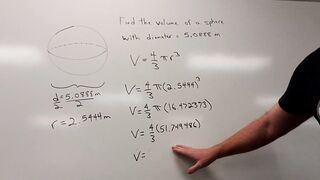 Find the volume of a sphere
with diameter = 5.0888 m
V = 4/3 π r³
d/2 = 5.0888 m/2
r = 2.5444 m
V = 4/3 π (2.5444)³
V = 4/3 π (16.472373)
V = 4/3 (51.749486)
V =